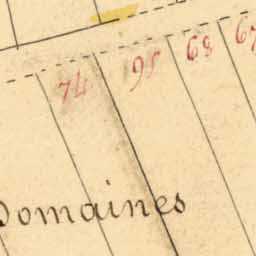 74 95 68 67
Domaines